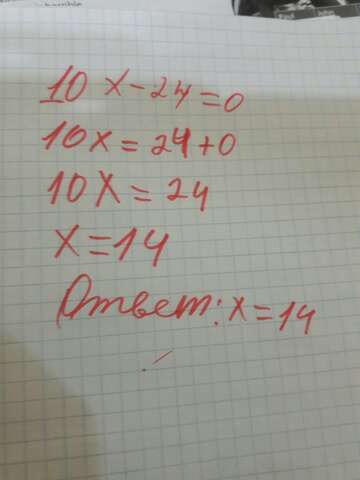 10 x - 24 = 0
10x = 24 + 0
10x = 24
x = 14
Ответ: x = 14